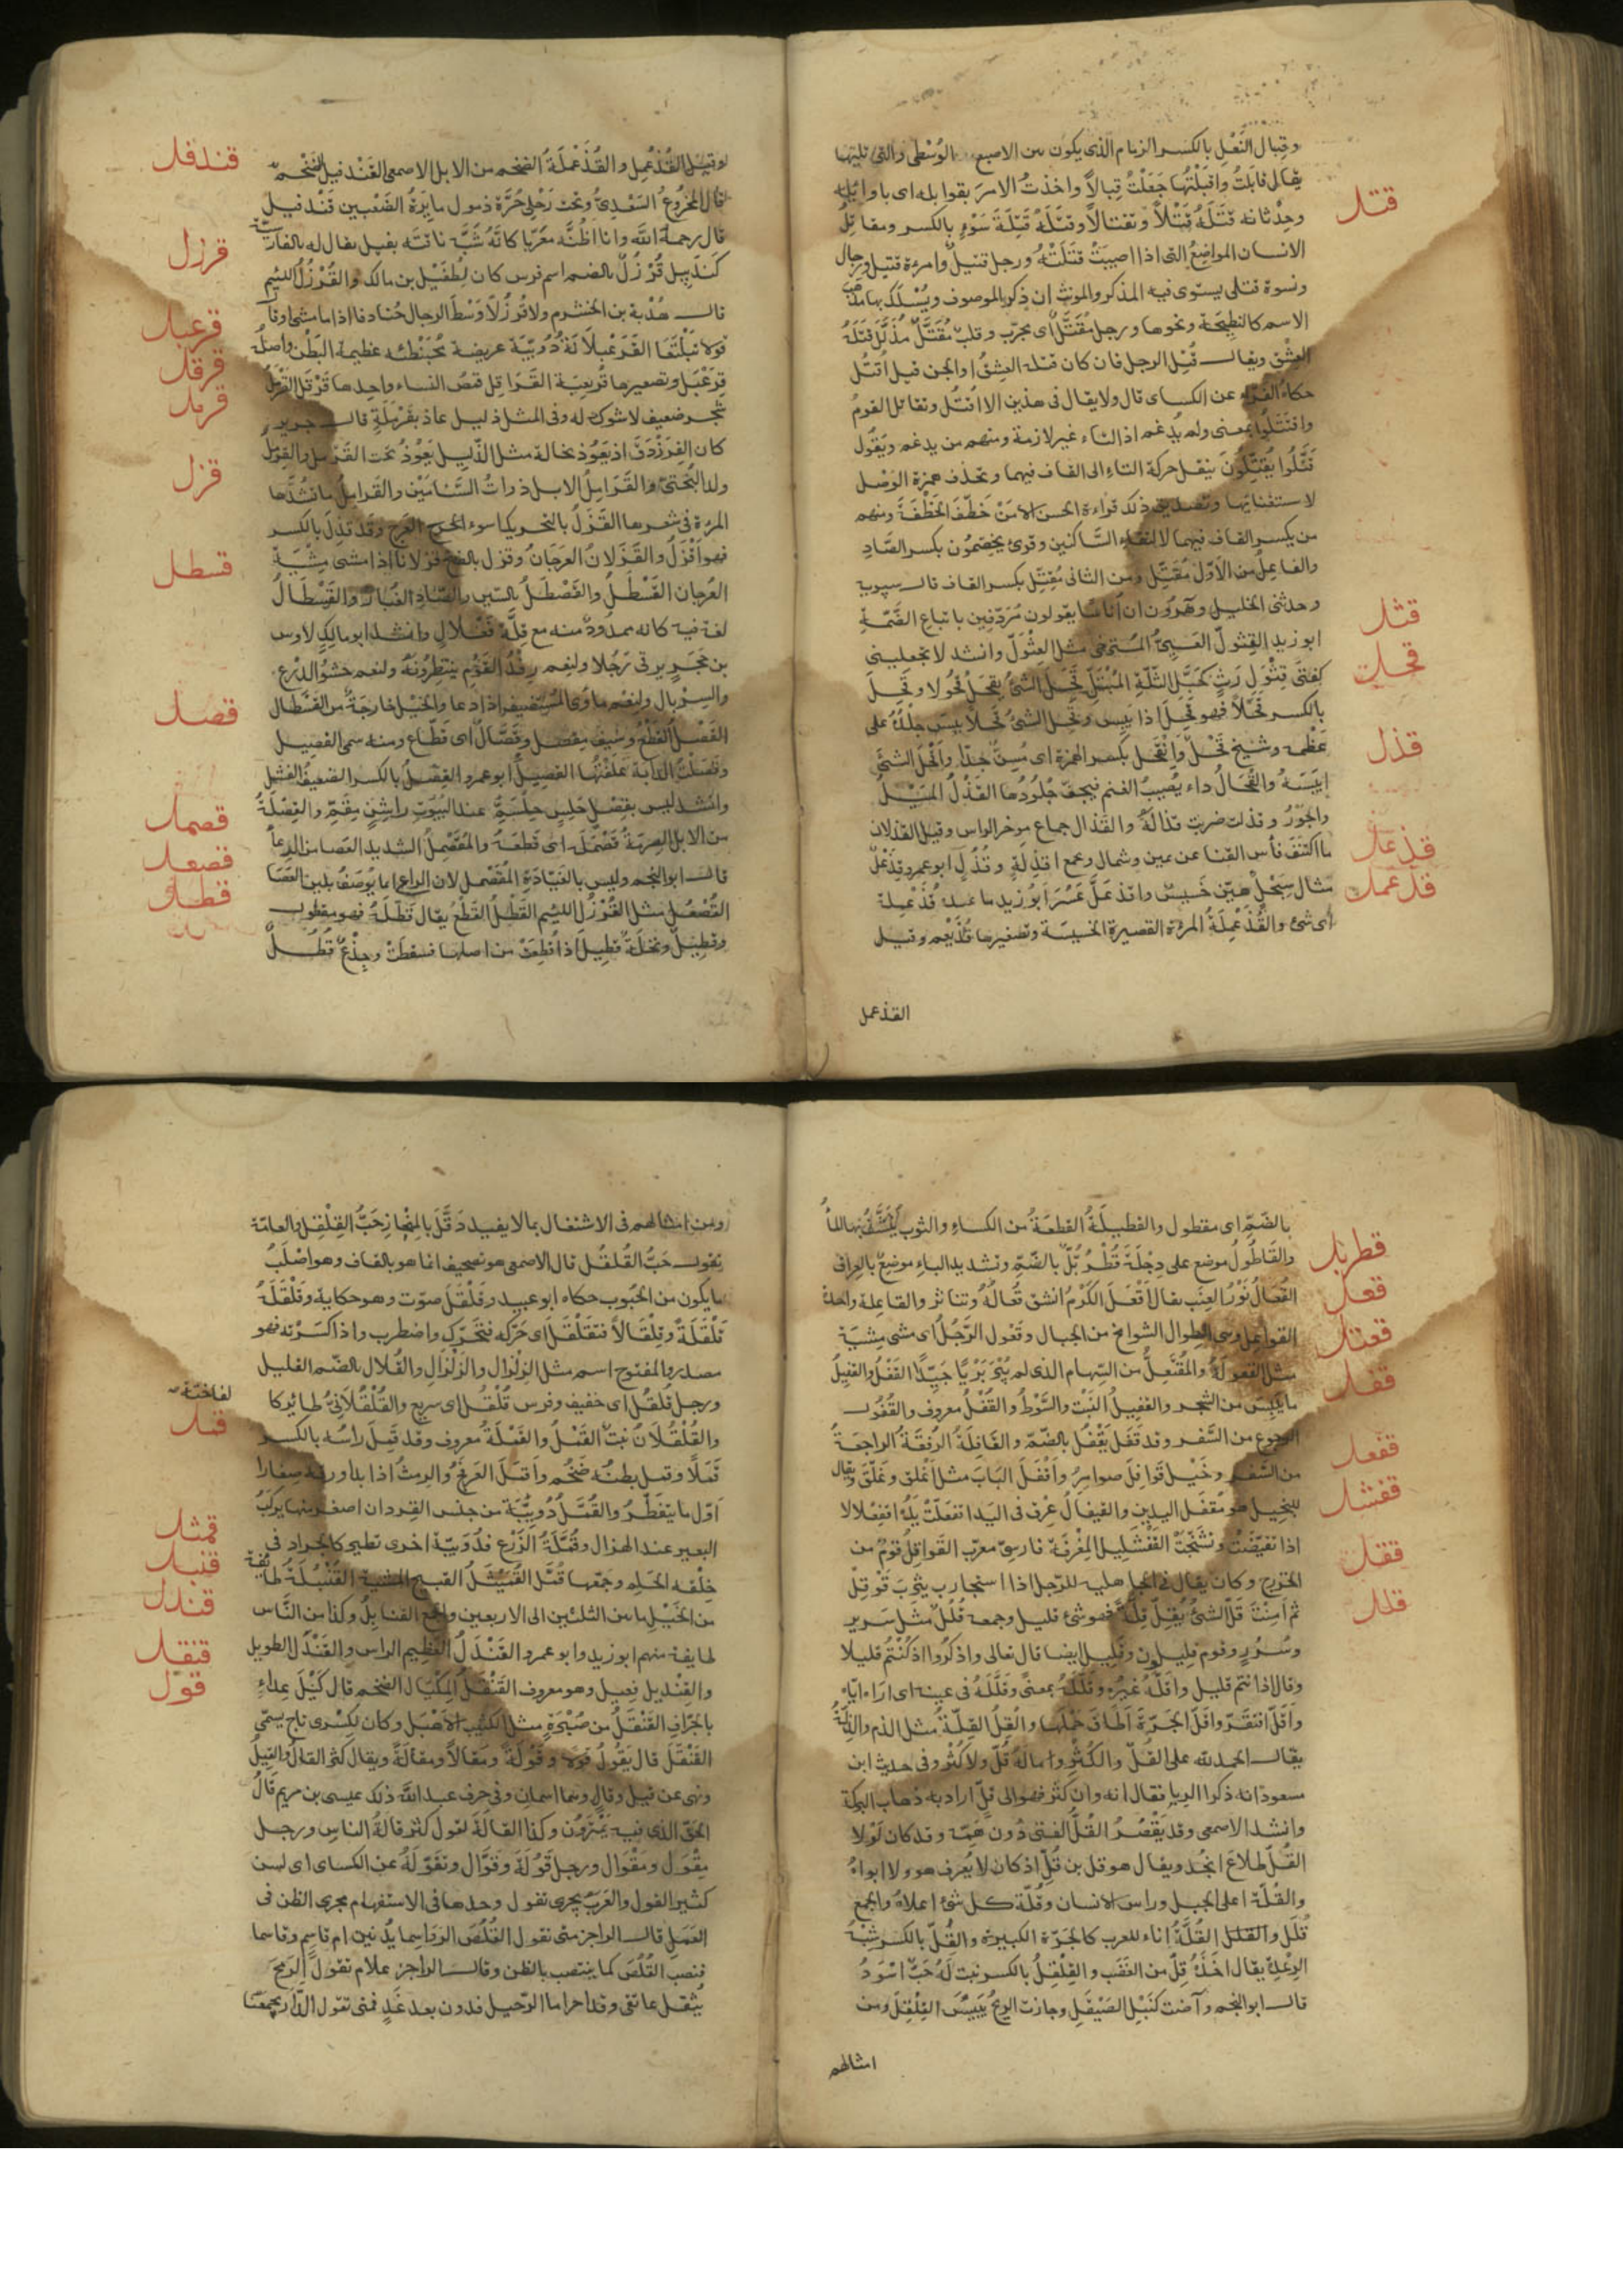 وقِبال النَّعْلِ بالكسر الزمام الذى يكون بين الاصبع الوُسْطى والتى تليها
يقال قابلتُ واقبلْتُها جَعَلْتُ قِبالاً واخذتُ الامرَ بقوابله اى باوائله
وحِدْثانه قتَلَهُ قَتْلاً وتَقتالاً وقتَلَهُ قِتْلَةَ سَوْءٍ بالكسر ومقاتِلُ
قتل
الانسان المواضِعُ التى اذا اصيبَتْ قتَلَتْهُ ورجل قتيلٌ وامرءة قتيل ورجال
ونسوة قتلى يستوى فيه المذكر والمونث ان ذكر الموصوف ويُسْلَك بها مذهب
الاسم كالنطِيحَة ونحوها ورجل مُقَتَّلٌ اى مجرّب وقلبٌ مُقَتَّلٌ مُذَلَّلٌ قتَلَهُ
العِشْق ويقال قُتِل الرجل فان كان قتله العِشْقُ او الجن قيل اُقتُتِل
حكاهُ الفَرّاء عن الكساى قال ولا يقال فى هذين الا اقتُتِل وتقاتل القومُ
واقتَتَلُوا بمعنى ولم يُدغم اذ التاء غير لازمة ومنهم من يدغم ويَقُول
قَتَّلُوا يُقَتِّلُونَ ينقل حركة التاءِ الى القاف فيهما ويحذف همزة الوَصْل
لاستغنائها وتصديق ذلك قراءة الحسن الا مَنْ خَطَّفَ الخَطْفَةَ ومنهم
من يكسر القاف فيهما لالتقاءِ السَّاكنين وقرئ يخِصِّمُون بكسر الصَّادِ
والفاعِلُ من الاَوّل مُقَتِّل ومن الثانى مُقِتِّل بكسر القاف قال سيبويه
وحدثنى الخليل وهَرُون ان اُناسًا يقولون مُرُدِّفِين باتباع الضَّمّةِ
قثل
ابو زيد القِثْولّ العَيِىُّ المُسترخى مثل العِثْوَلّ وانشد لا تجعلينى
قحل
كفتىً قِثْوَلّ رَثٍّ كحَبْلِ الثَّلَّةِ المُبْتَلِّ قحَلَ الشئُ يقحَلُ قُحُولا وقَحِلَ
بالكسر قَحَلاً فهو قَحِلٌ اذا يَبِس وقَحِل الشئُ قَحَلاً يبِسَ جِلْدُهُ على
عَظْمِه وشيخ قَحْلٌ واِنْقَحْلٌ بكسر الهمزة اى مُسِنٌّ جِدًّا واَقْحَلَ الشئَ
قذل
اِيبَسَهُ والقُحَالُ داء يُصِيبُ الغنم فيجفّ جُلُودُها القَذْلُ المَيْلُ
والجَوْرُ وقذلت ضربت قذالَهُ والقَذال جماع موخر الراس وقيل القذلان
قذعل
ما اكتَنَفَ فأس القفا عن يمين وشمال وجمع اقذِلَةٍ وقُذُل ابو عمرو قِذْعَلٌ
قذعمل
مثال سِبَحْلٍ هيّن خَسِيسٌ واقذعَلَّ عَسُرَ ابو زيد ما عنده قُذَعْمِلة
اى شئ والقُذَعْمِلَةُ المرءة القصيرة الخسيسة وتصغيرها قُذَيْعِم وقيل
القذعمل
وقيل القُذَعْمِل والقُذَعْمِلَةُ الضخم من الابل الاصمعى القَنْدَفيل الضَّخْم
قندفل
قال المخرُوعُ السَعْدِىُّ وتحت رَحْلى حُرّة ذمول مايرَةُ الضَبْعين قَنْدَفيل
قال رحمهُ الله وانا اظنّه معَرّبا كانّهُ شَبَّه ناقتَه بفيل يقال له بالفارسيّة
قرزل
كَنْدَبِيل قُرْزُلٌ بالضم اسم فرس كان لطُفَيْل بن مالك والقُرْزُل اللئيم
قال هُدْبة بن الخشرم ولا قُرْزُلاً وَسْطَ الرجال جُنادفا اذا ما مشى او قا
قرعبل
قولا تَبَلْتَعا القَرَعْبلاَنَة دُوَيبّة عريضة مُحبَنْطئه عظيمة البَطْن واصلُهُ
قرقل
قِرَعْبَل وتصغيرها قُرَيعِبَة القَراقِل قمصُ النساء واحِدها قَرْقَل القَرْمَلُ
قرمل
شجر ضعيف لا شوك له وفى المثل ذليل عاذ بقَرْمَلَةٍ قال جرير
كان الفِرَزْدَقَ اذ يَعُوذ بخاله مثل الذّليل يَعُوذُ تحت القَرْمل والقِرْمِلُ
قزل
ولد البُختىّ والقَرَامِلُ الابل ذوات السَّنامَيْن والقرامِيلُ ما تشُدُّها
المرءة فى شعرها القَزَلُ بالتحريك اسوء العرج وقد قزِلَ بالكسر
فهو اَقْزَلُ والقَزَلانُ العرَجانُ وقزل بالفتح قزلانا اذا مشى مِشْيَةَ
قسطل
العُرجان القَسْطَلُ والقَصْطَلُ بالسّين والصّادِ الغُبارُ والقَسْطَالُ
لغة فيه كانه ممدُودٌ منه مع قلّة فَعْلالٍ وانشد ابو مالكٍ لاوس
بن حَجَرٍ يرثى رَجُلا ولنِعم رِفْدُ القَوْمِ ينتظِرُونَهُ ولنِعم حَشْوُ الدِّرْعِ
والسِرْبال ولنِعم مأوى المُستضيف اذا دعا والخيل خارجَةٌ من القَسْطال
قصل
القَصْلُ القَطْعُ وسَيْفٌ مِقْصَل وقَصَّالٌ اى قطّاع ومنه سمى القَصِيل
وقصَلْتُ الدابّة عَلفْتُها القصِيلَ ابو عمرو القِصْلُ بالكسر الضعيفُ الفَشِل
قصمل
وانشد ليس بقِصْلٍ حَلِسٍ حِلْسَمِّ عند البُيُوت راشِنٍ مِقَمِّ والقِصْلَةُ
من الابل الصِرمَةُ قَصْمَلَهُ اى قطعَهُ والمُقَصْمِلُ الشديد العَصَا من الرِعاءِ
قصعل
قال ابو النجم وليس بالفَيّادَةِ المُقَصْمِل لان الراعى انما يُوصَفُ بلين العَصَا
قطل
القُصْعُل مثل القُرْزُل اللئيم القَطْلُ القَطْعُ يقال قَطَلَهُ فهو مقطول
وقطِيلٌ ونخلَةٌ قطِيلٌ اذا قُطِعَتْ من اصلها فسقطَتْ وجِذْعٌ قُطُلٌ
بالضَمّ اى مقطول والقطيلَةُ القطعَةُ من الكساءِ والثوبِ يُنَشَّفُ بها الماءُ
قطربل
والقَاطُولُ موضع على دِجْلَةَ قُطْرُبُّلٌ بالضمّ وتشديد الباءِ موضِعٌ بالعِراق
قعل
القُعَالُ نَوْرُ العِنَب يقال اَقْعَلَ الكَرْمُ انشق قُعالُهُ وتناثر والقاعِلة واحدة
قعثل
القواعل وهى الطوال الشوامخ من الجبال وتَقُول الرَّجُلُ اى مشى مِشْيَةَ
قفل
مثل القعولَةِ والمُقْتَعَلُ من السِّهام الذى لم يُبْرَ بَرْيًا جَيِّدًا القَفْلُ والقَفِيلُ
ما يَبِسَ من الشجر والقفِيلُ النَبْت والسَّوْط والقُفْلُ معروف والقُفُول
قفعل
الرجوع من السَّفر وقد قَفَلَ يَقْفُل بالضمّ والقافِلَةُ الرُفقَةُ الراجعَةُ
من السَّفر وخَيْل قَوافِل ضوامِرُ واَقْفَلَ البَابَ مثل اَغْلق وغَلَّقَ ويقال
قفشل
للبَخِيل هو مُقفَل اليدين والقيفال عِرْق فى اليَد اقفعَلَّتْ يَدُهُ اقفِعْلالا
اذا تقبّضَتْ وتشَنّجَتْ القَفْشَلِيل المِغْرفَة فارسىّ معرّب القَواقِلُ قومٌ من
ققل
الخزرج وكان يقال فى الجاهلية للرّجل اذا استجار بيثربَ قَوْقِلْ
قلل
ثمّ اَمِنْتَ قَلَّ الشئُ يَقِلّ قِلَّةً فهو شئ قليل وجمعه قُلُلٌ مثل سَرير
وسُرُرٍ وقوم قليلون وقليل ايضا قال تعالى واذكرُوا اذ كُنْتُم قليلا
وقال اذ انتم قليل واقلّهُ غيرُهُ وقلّلهُ بمعنىً وقلَّلَهُ فى عينه اى اراه ايّاه
واَقَلّ افتقَرَ واقلّ الجَرّة اَطَاقَ حَمْلَها والقُلُّ القِلّةُ مثل الذُلّ والذِلّةُ
يقال الحمد لله على القُلّ والكُثْرِ وما لَهُ قُلّ ولا كُثْرٌ وفى حديث ابن
مسعود انه ذكر الربا فقال انه وان كَثُرَ فهو الى قلٍّ اراد به ذهاب البركة
وانشد الاصمعى وقد يَقْصُرُ القُلُّ الفتى دُون هَمِّه وقد كان لَوْلا
القُلّ طلاعَ انجُد ويقال هو قل بن قُلّ اذ كان لا يُعرف هو ولا ابواهُ
والقُلّة اعلى الجبل وراس الانسان وقُلّة كل شئ اعلاهُ والجمع
قُلَل والقلل القُلَّةُ اِناء للعرب كالجَرّة الكبيرة والقِلّ بالكسر شِبْهُ
الرِعْدَةِ يقال اخَذَهُ قِلٌّ من الغَضَب والقِلْقِلُ بالكسر نبت لَهُ حَبٌّ اسْوَدُ
قال ابو النجم وآضت كنَبْل الصَيْقَلِ وجازت الريحُ يَبِيسَ القِلْقِلِ ومن
امثالهم
ومن امثالهم فى الاشتغال بما لا يفيد دَقَّكَ بالمِنْحازِ حَبَّ القِلْقِل والعامّة
تقول حَبَّ الفُلفُل قال الاصمعى هو تصحيف انما هو بالقاف وهو اصْلَبُ
ما يكون من الحُبُوب حكاه ابو عبيد وقَلْقَلَ صوّت وهو حكاية وقَلْقَلَهُ
قَلْقَلَةً وقِلْقَالاً فتقَلْقَلَ اى حَرّكه فتحَرّك واضطرب واذا كسَرْته فهو
مصدر والمفتوح اسم مثل الزِلْزَال والزَلْزَالِ والقُلال بالضّم القليل
ورجل قلقُل اى خفيف وفرس قُلْقُل اى سريع والقُلْقُلاَنِىُّ طائر كا
لفاختة
والقُلْقُلاَنُ نبتٌ القَمْلُ والقَمْلَةُ معروف وقد قَمِلَ رأسُه بالكسر
قمل
قَمَلاً وقمل بطنُهُ ضَخُم واَقمَلَ العَرفَجُ والرمثُ اذا بدا ورقه صِغارا
اَوّل ما يتفَطّرُ والقُمَّلُ دُوَيبّة من جنس القِردان اصغر منها يركَبُ
قمثل
البعير عند الهزال وقُمَّلَةُ الزَرْع فدُوَيبّة اخرى تطير كالجراد فى
قنبل
خِلْقه الحَلم وجَمْعها قُمَّل القَمَيْثَلُ القبيح المِشية القَنْبُلَةُ طايفة
قندل
من الخَيْل ما بين الثلثين الى الاربعين والجمع القنابِلُ وكذا من النَّاس
قنقل
طايفة منهم ابو زيد وابو عمرو القَنْدَلُ العَظِيم الراس والقَنْدَلُ الطويل
قول
والقِنْدِيل فِعِيل وهو معروف القَنْقَلُ المِكْيَال الضخم قال كَيْلَ عِداءٍ
بالجُرَافِ القَنْقَلِ من صُبْرَةٍ مثل الكثيب الاَهْيَل وكان لكِسْرى تاج يسمّى
القَنْقَلَ قال يَقُولُ قولا وقَوْلَةً ومَقالاً ومقالَةً ويقال كثر القالُ والقيلُ
ونهى عن قيل وقالٍ وهما اسمان وفى حرف عبد الله ذلك عيسى بن مريم قَالُ
الحَقّ الذى فيه يَمْتَرُونَ وكذا القالَةُ تقول كثر قَالَةُ الناس ورجل
مِقْوَل ومِقْوَال ورجل قَوُلَةٌ وقَوّال وتقوّلَةٌ عن الكساى اى لسن
كثير القول والعَرَبُ تجرى تقول وحدها فى الاستفهام مجرى الظن فى
العَمَلِ قال الراجز متى تقول القُلُصَ الرواسِما يُدنين ام قاسِمٍ وقاسما
فنصب القُلُصَ كما ينتصب بالظن وقال الراجز علام تقولُ الرمحَ
يُثْقل عاتقى وقال اخر اما الرّحيل فدون بعد غَدٍ فمتى تقول الدّارَ تجمعُنا